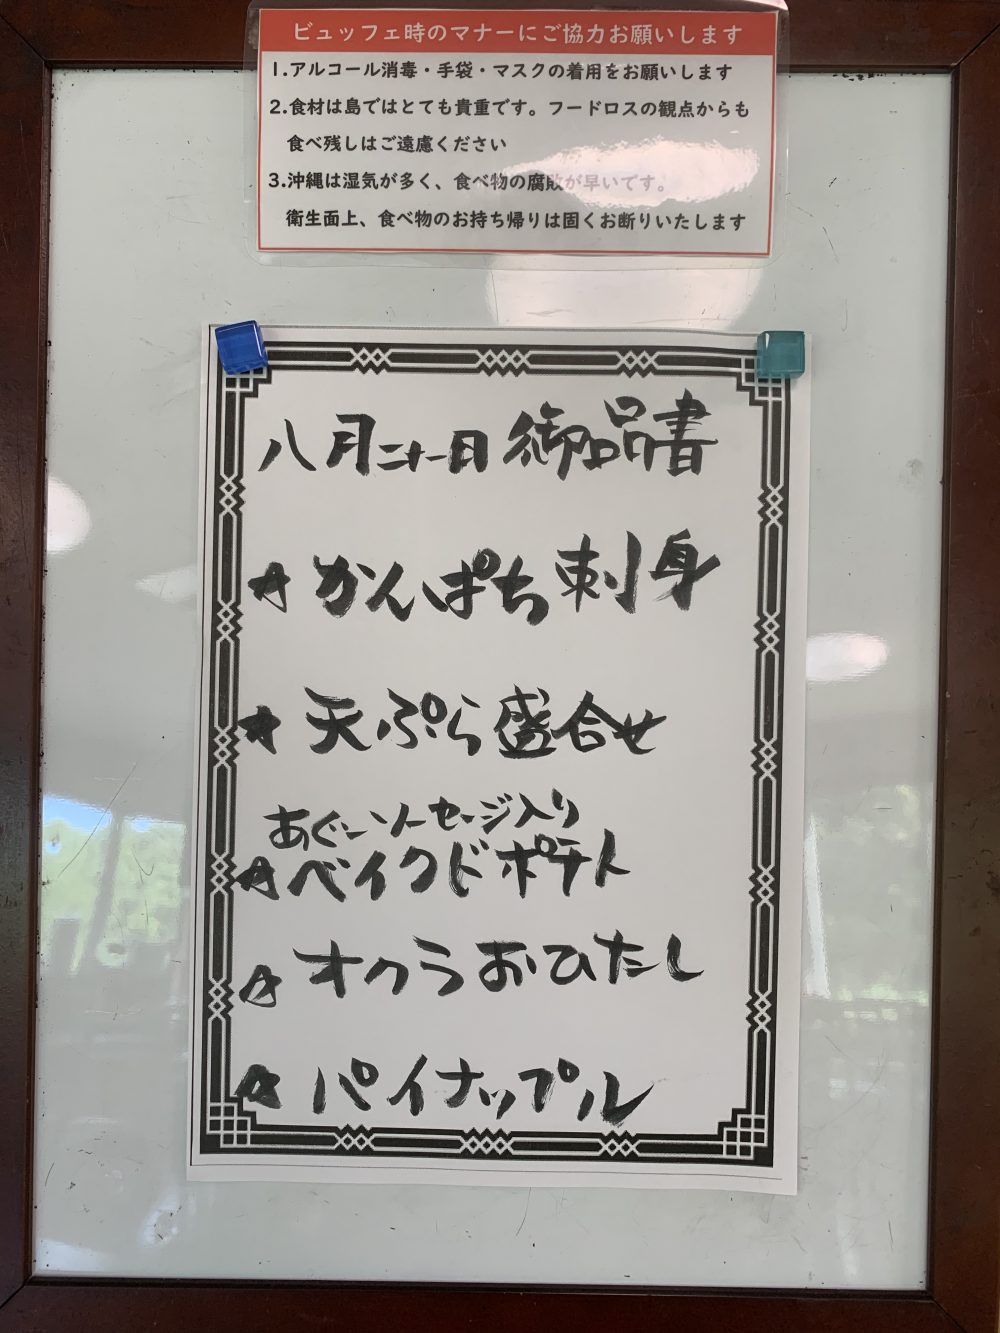 ビュッフェ時のマナーにご協力お願いします
1.アルコール消毒・手袋・マスクの着用をお願いします
2.食材は島ではとても貴重です。フードロスの観点からも
食べ残しはご遠慮ください
3.沖縄は湿気が多く、食べ物の腐敗が早いです。
衛生面上、食べ物のお持ち帰りは固くお断りいたします
八月二十一日 御品書
☆かんぱち刺身
★天ぷら盛合せ
あぐーソーセージ入り
☆ベイクドポテト
☆オクラおひたし
☆パイナップル